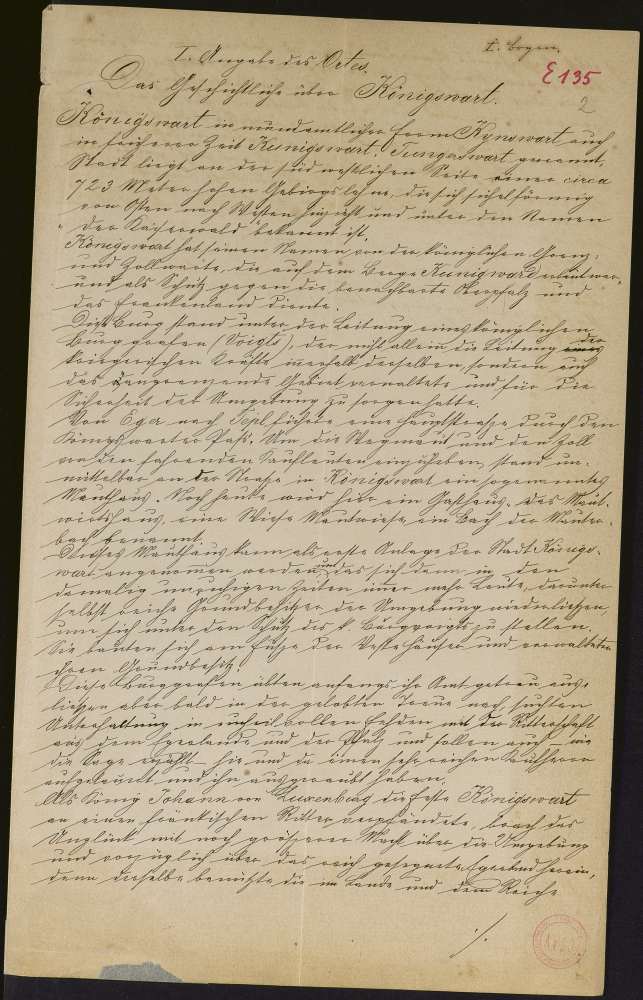 I. Bogen.
I. Angabe des Ortes.
E 135
2
Das Geschichtliche über Königswart.
Königswart in mundamtlicher Form Kynswart auch
in früherer Zeit Kunigswart, genannt,
Stadt liegt an der südwestlichen Seite einer circa
723 Meter hohen Gebirgslehne, die sich sichelförmig
von Osten nach Westen hinzieht und unter den Namen
der Kaiserwald bekannt ist.
Königswart hat seinen Namen von der königlichen Grenz-
und Zollwarte, die auf dem Berge Kunigward
und als Schutz gegen die benachbarte Oberpfalz und
das Frankenland diente.
Diese Burg stand unter der Leitung eines königlichen
Burggrafen (Voigts), der nicht allein die Leitung der
kriegerischen Kräfte innerhalb derselben, sondern auch
das angrenzende Gebiet verwaltete und für die
Sicherheit der Umgebung zu sorgen hatte.
Von Eger nach Tepl führte eine Hauptstrasse durch den
Königswarter Paß. Um die Wegmaut und den Zoll
von den fahrenden Kaufleuten einzuheben, stand un-
mittelbar an der Straße in Königswart ein sogenanntes
Mauthaus. Noch heute wird hier ein Gasthaus, das Maut-
wirtshaus, eine Wiese Mautwiese, ein Bach der Mauter-
bach benannt.
Dieses Mauthaus kann als erste Anlage der Stadt Königs-
wart angenommen werden und das sich dann in den
damalig unruhigen Zeiten immer mehr Leute, darunter
selbst reiche Grundbesitzer der Umgebung niederließen,
um sich unter den Schutz des k. Burgvoigts zu stellen.
Sie bauten sich am Fuße der Veste Häuser und verwalteten
ihren Grundbesitz.
Diese Burggrafen übten anfangs ihr Amt getreu aus,
ließen aber bald in der gelobten Treue nach, suchten
Unterhaltung in unheilvollen Fehden mit der Ritterschaft
aus dem Egerlande und der Pfalz und sollen auch wie
die Sage erzählt hie und da einen sehr reichen Kaufherrn
aufgelauert und ihn ausgeraubt haben.
Als König Johann von Luxenburg die feste Königswart
an einen fränkischen Ritter verpfändete, brach das
Unglück mit noch größerer Macht über die Umgebung
und vorzüglich über das reich gesegnete Egerland herein,
denn derselbe benützte die im Lande und dem Reiche
./.